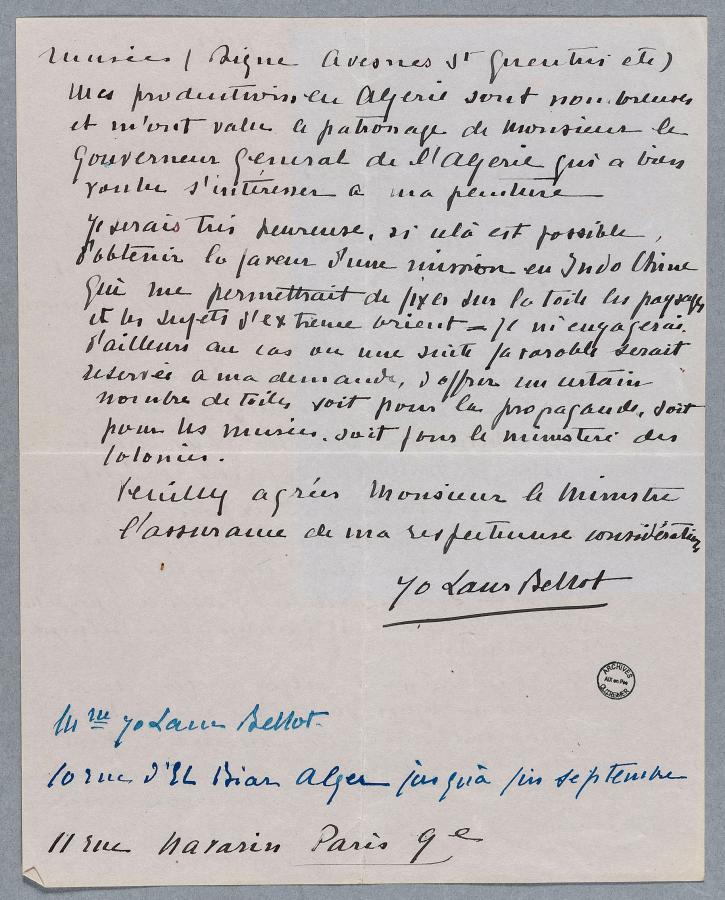 musées (Digne Avesnes St Quentin etc)
Mes productions en Algérie sont nombreuses
et m'ont valu le patronage de Monsieur le
Gouverneur Général de l'Algérie qui a bien
voulu s'intéresser a ma peinture
Je serais très heureuse, si celà est possible,
d'obtenir la faveur d'une mission en Indo Chine
qui me permettrait de fixer sur la toile les paysages
et les sujets d'extreme orient = Je m'engagerai
d'ailleurs au cas ou une suite favorable serait
reservée a ma demande, d'offrir un certain
nombre de toiles soit pour la propagande, soit
pour les musées, soit pour le ministère des
Colonies.
Veuillez agréer Monsieur le Ministre
l'assurance de ma respectueuse considération
Yo Laur Bellot
ARCHIVES
AIX en Pce
OUTREMER
Mme Yo Laur Bellot
10 rue d'El Biar Alger jusquà fin septembre
11 rue Navarin Paris 9e